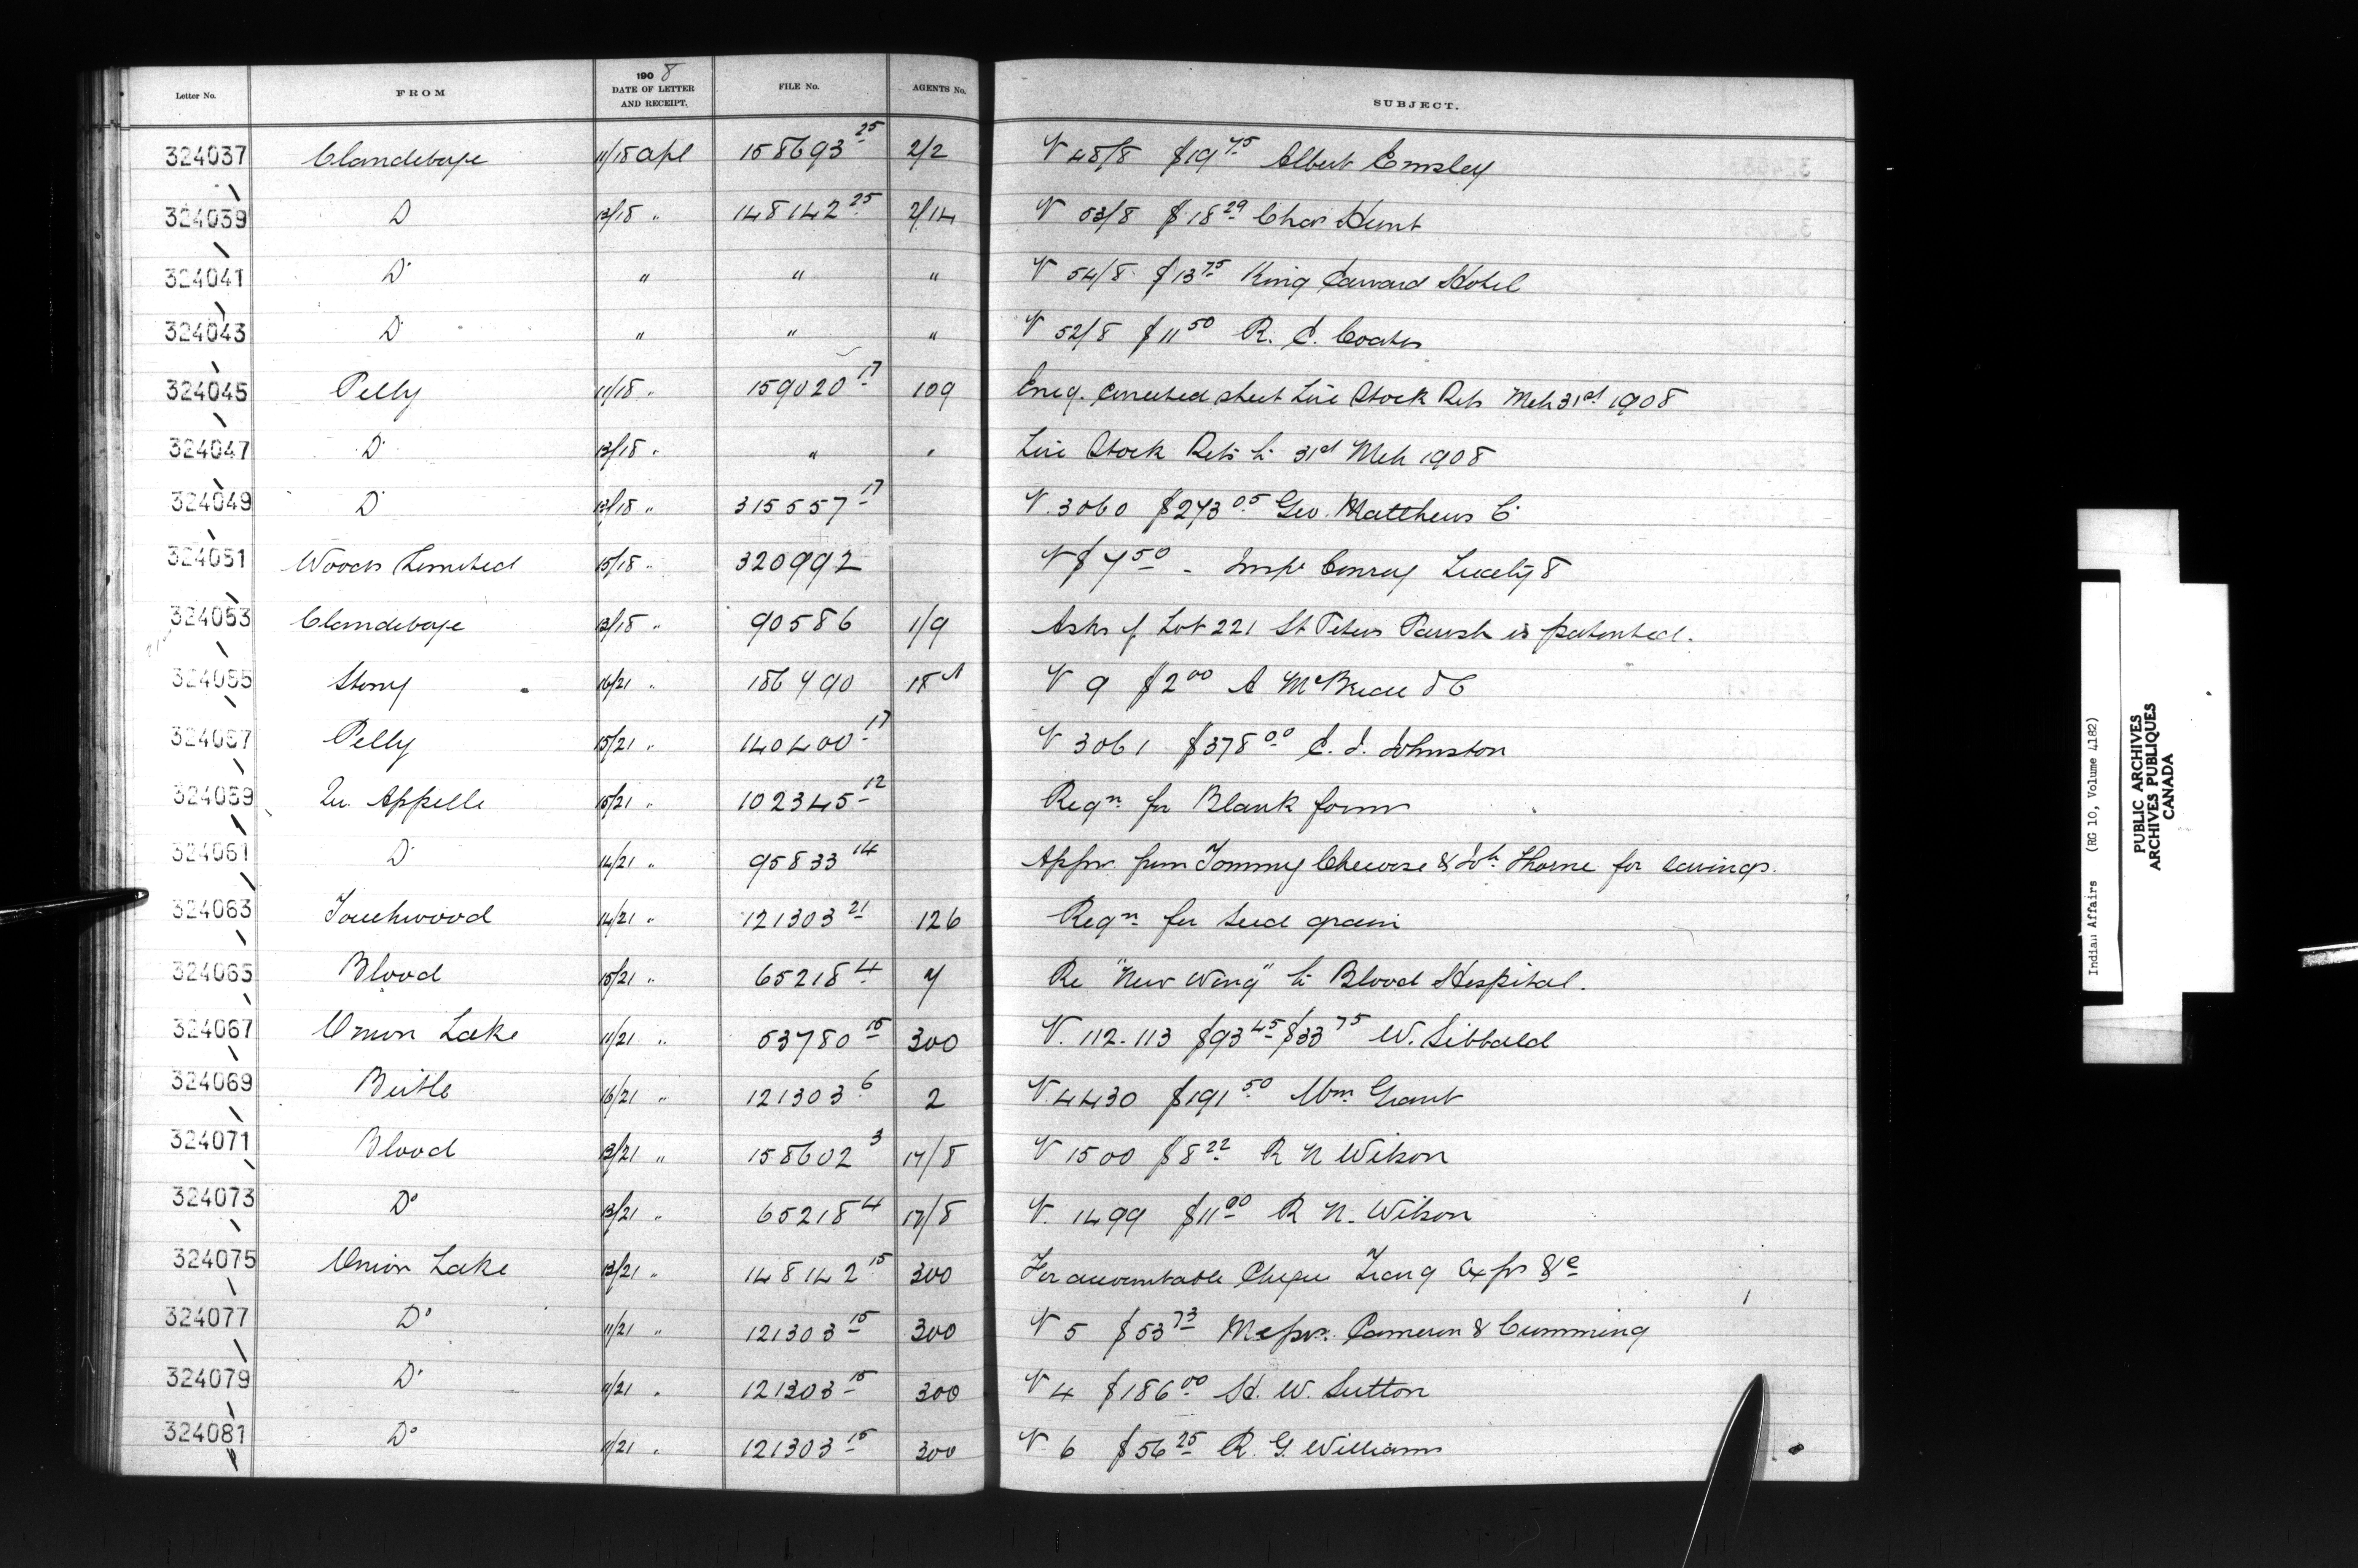 Letter No. FROM 190 8 DATE OF LETTER AND RECEIPT. FILE No. AGENTS No. SUBJECT.
324037 Clandeboye 11/18 Apl 158693 25 2/2 V 48/8 $19 75 Albert Emsley
324039 D 13/18 " 148142 25 2/14 V 53/8 $18 29 Chas Hunt
324041 D° " " " V 54/8 $13 75 King Edward Hotel
324043 D° " " " V 52/8 $11 50 R. C. Coates
324045 Pelly 11/18 " 159020 17 109 Encg. Corrected sheet Live Stock Retn Mch 31st 1908
324047 D° 13/18 " " " Live Stock Retn to 31st Mch 1908
324049 D° 13/18 " 315557 17 V. 3060 $273 05 Geo. Matthews C°
324051 Woods Limited 15/18 " 320992 V $7 50 - Insp Conroy Treaty 8
324053 Clandeboye 13/18 " 90586 1/9 Asks if Lot 221 St Peters Parish is patented.
324055 Stony 16/21 " 186790 18 A V 9 $2 00 A McBride & C
324057 Pelly 15/21 " 140400 17 V 3061 $378 00 C. J. Johnston
324059 Qu Appelle 15/21 " 102345 12 Reqn for Blank forms
324061 D° 14/21 " 95833 14 Appn from Tommy & Jos. Thorne for savings.
324063 Touchwood 14/21 " 121303 21 126 Reqn for seed grain
324065 Blood 15/21 " 65218 4 7 Re "New Wing" to Blood Hospital.
324067 Onion Lake 11/21 " 53780 15 300 V. 112-113 $93 45 $33 75 W. Sibbald
324069 Birtle 16/21 " 121303 6 2 V. 4430 $191 50 Wm Grant
324071 Blood 13/21 " 158602 3 17/8 V 1500 $8 22 R N Wilson
324073 D° 13/21 " 65218 4 17/8 V. 1499 $11 00 R N. Wilson
324075 Onion Lake 13/21 " 148142 15 300 For accountable Cheque Trang Exps &c
324077 D° 11/21 " 121303 15 300 V 5 $53 73 Messrs. Cameron & Cumming
324079 D° 11/21 " 121303 15 300 V 4 $186 00 H. W. Sutton
324081 D° 11/21 " 121303 15 300 V 6 $56 25 R. G. Williams
Indian Affairs (RG 10, Volume 4182)
PUBLIC ARCHIVES
ARCHIVES PUBLIQUES
CANADA